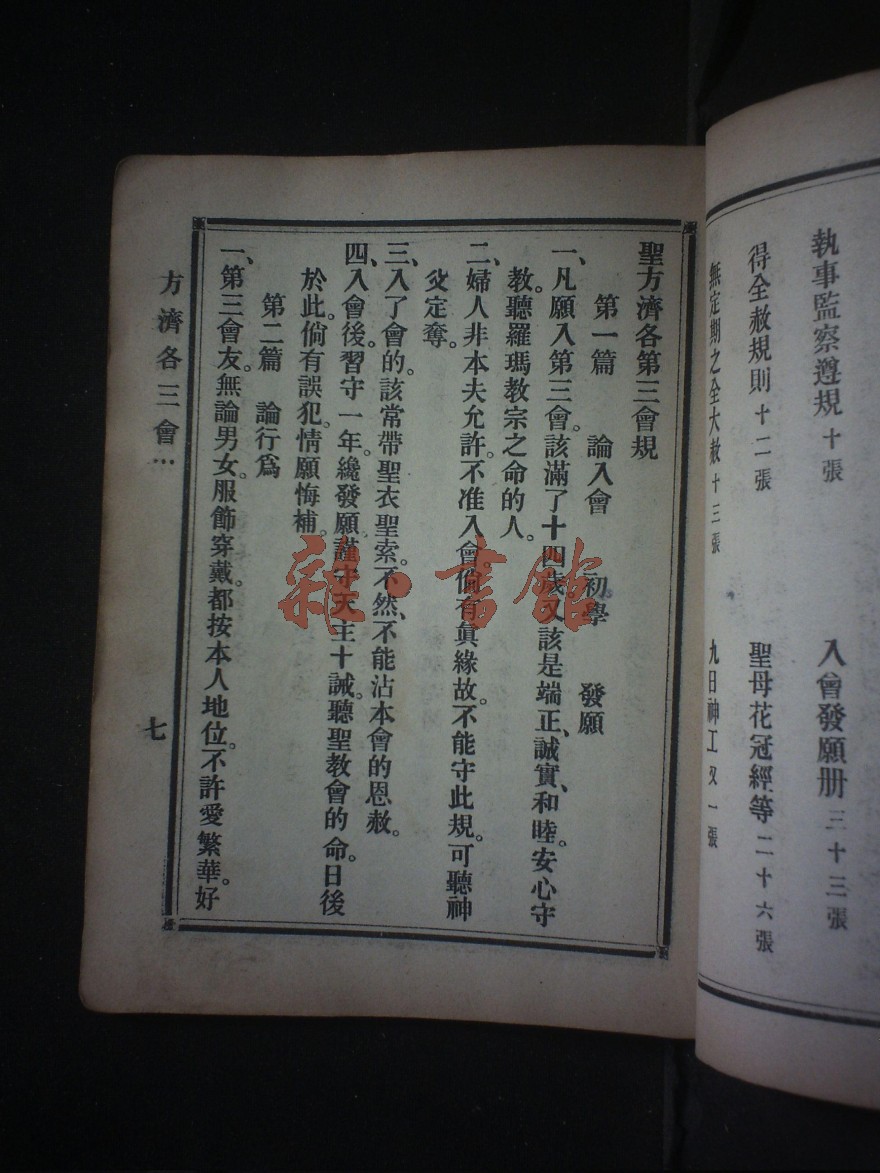 執事監察遵規十張
入會發願册三十三張
得全赦規則十二張
聖母花冠經等二十六張
無定期之全大赦十三張
九日神工又一張
聖方濟各第三會規
第一篇 論入會 初學 發願
一、凡願入第三會。該滿了十四歲、又該是端正、誠實、和睦。安心守
教。聽羅瑪教宗之命的人。
二、婦人非本夫允許。不准入會。倘有眞緣故。不能守此規。可聽神
父定奪。
三、入了會的。該常帶聖衣聖索。不然、不能沾本會的恩赦。
四、入會後。習守一年。纔發願。謹守天主十誡。聽聖教會的命。日後
於此。倘有誤犯。情願悔補。
第二篇 論行爲
一、第三會友。無論男女。服飾穿戴。都按本人地位。不許愛繁華。好
方濟各三會…
七
雜·書館